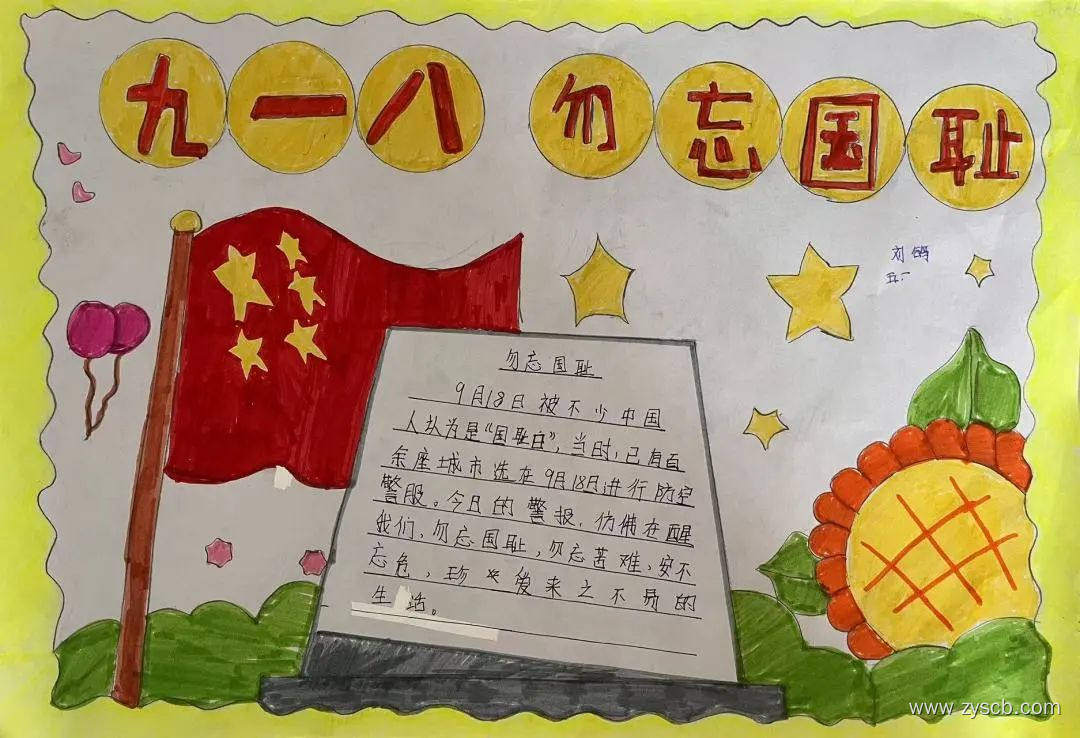 九一八 勿忘国耻
刘
五二
勿忘国耻
9月18日被不少中国
人认为是“国耻日”,当时,已有百
余座城市选在9月18日进行防空
警报。今日的警报,仿佛在醒
我们,勿忘国耻,勿忘苦难,安不
忘危,珍爱来之不易的
生活。
www.zyscb.com